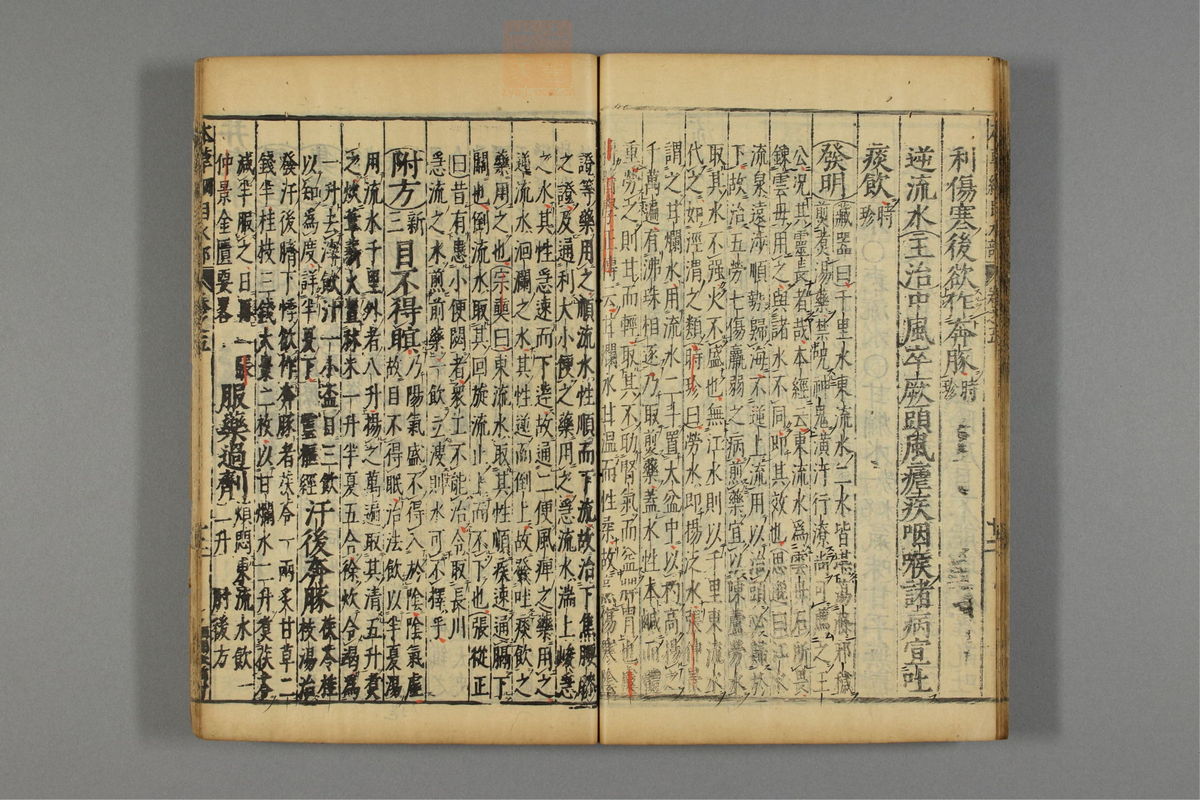 利傷寒後欲作奔豚時珍
逆流水主治中風卒厥頭風瘧疾咽喉諸病宣吐
痰飲時珍
發明藏器曰千里水東流水二水皆堪盪滌邪穢
煎煮湯藥禁呪神鬼潢汙行潦尚可薦之王
公况其靈長者哉本經云東流水爲雲母石所畏
鍊雲母用之與諸水不同即其效也思邈曰江水
流泉遠涉順勢歸海不逆上流用以治頭必歸於
下故治五勞七傷羸弱之病煎藥宜以陳蘆勞水
取其水不強火不盛也無江水則以千里東流水
代之如涇渭之類時珍曰勞水即揚泛水張仲景
謂之甘爛水用流水二斗置大盆中以杓高揚之
千萬遍有沸珠相逐乃取煎藥蓋水性本鹹而體
重勞之則甘而輕取其不助腎氣而益脾胃也
甘爛水甘温而性柔故烹傷寒陰
證等藥用之順流水性順而下流故治下焦腰膝
之證及通利大小便之藥用之急流水湍上峻急
之水其性急速而下達故通二便風痺之藥用之
逆流水洄瀾之水其性逆而倒上故發吐痰飲之
藥用之也宗奭曰東流水取其性順疾速通膈下
關也倒流水取其回旋流止上而不下也張從正
曰昔有患小便閟者衆工不能治令取長川
急流之水煎前藥一飲立溲則水可不擇乎
附方新三目不得瞑乃陽氣盛不得入於陰陰氣虛
故目不得眠治法飲以半夏湯
用流水千里外者八升揚之萬遍取其清五升煮
之炊葦薪火置秫米一升半夏五合徐炊令竭爲
一升去滓飲汁一小盃日三飲
以知爲度詳半夏下靈樞經汗後奔豚茯苓桂枝湯治
發汗後臍下悸欲作奔豚者茯苓一兩炙甘草二
錢半桂枝三錢大棗二枚以甘爛水二升煮茯苓
減半服之日三張
仲景金匱要畧服藥過劑煩悶東流水飲一二升肘後方
本草綱目水部